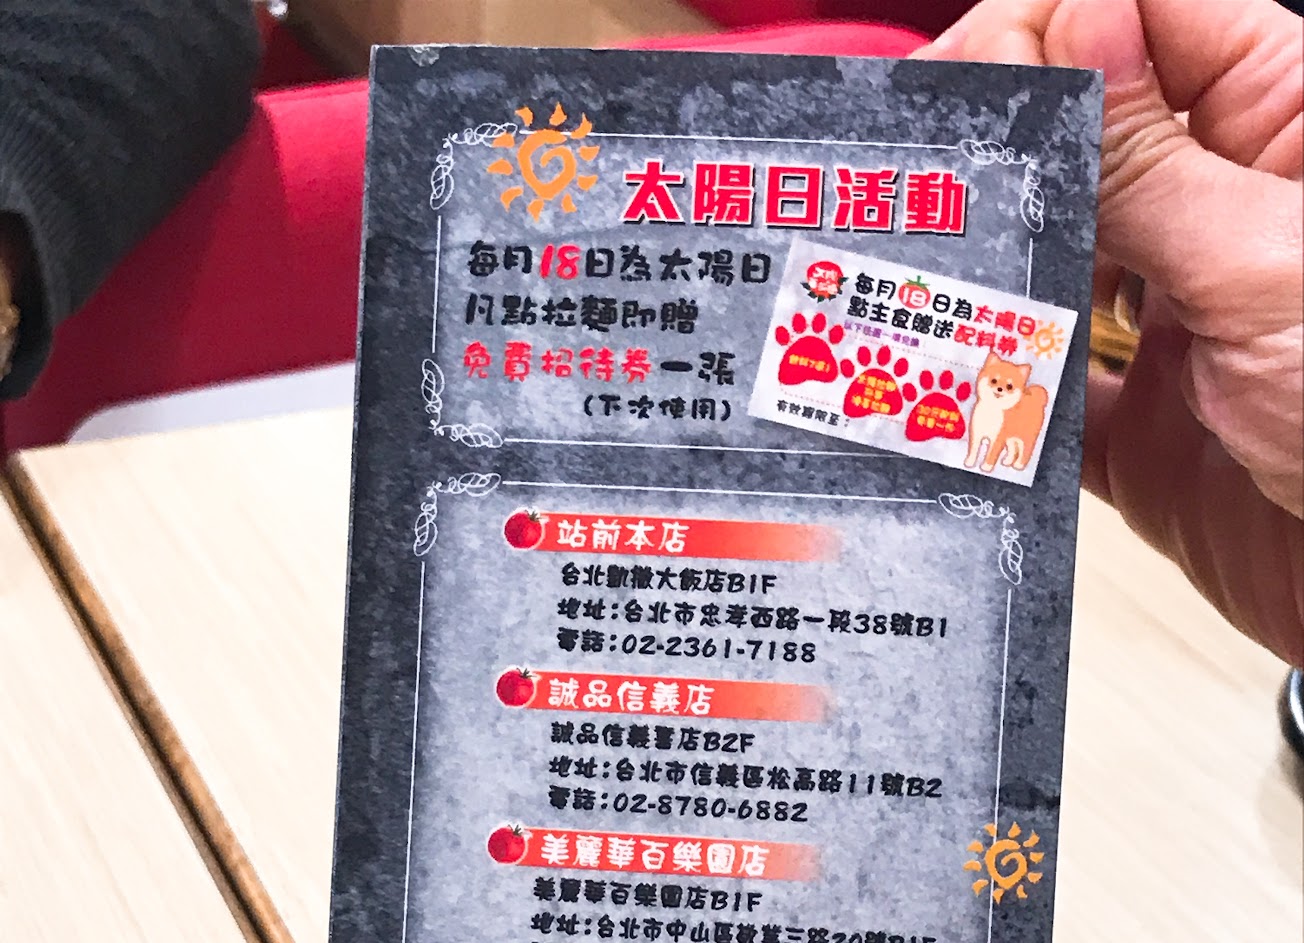 太陽日活動
每月18日為太陽日
凡點拉麵即贈
免費招待券一張
(下次使用)
每月18日為太陽日
點主食贈送配料券
有效期限至：
站前本店
台北凱撒大飯店B1F
地址：台北市忠孝西路一段38號B1
電話：02-2361-7188
誠品信義店
誠品信義書店B2F
地址：台北市信義區松高路11號B2
電話：02-8780-6882
美麗華百樂園店
美麗華百樂園店B1F
地址：台北市中山區敬業三路20號B1F